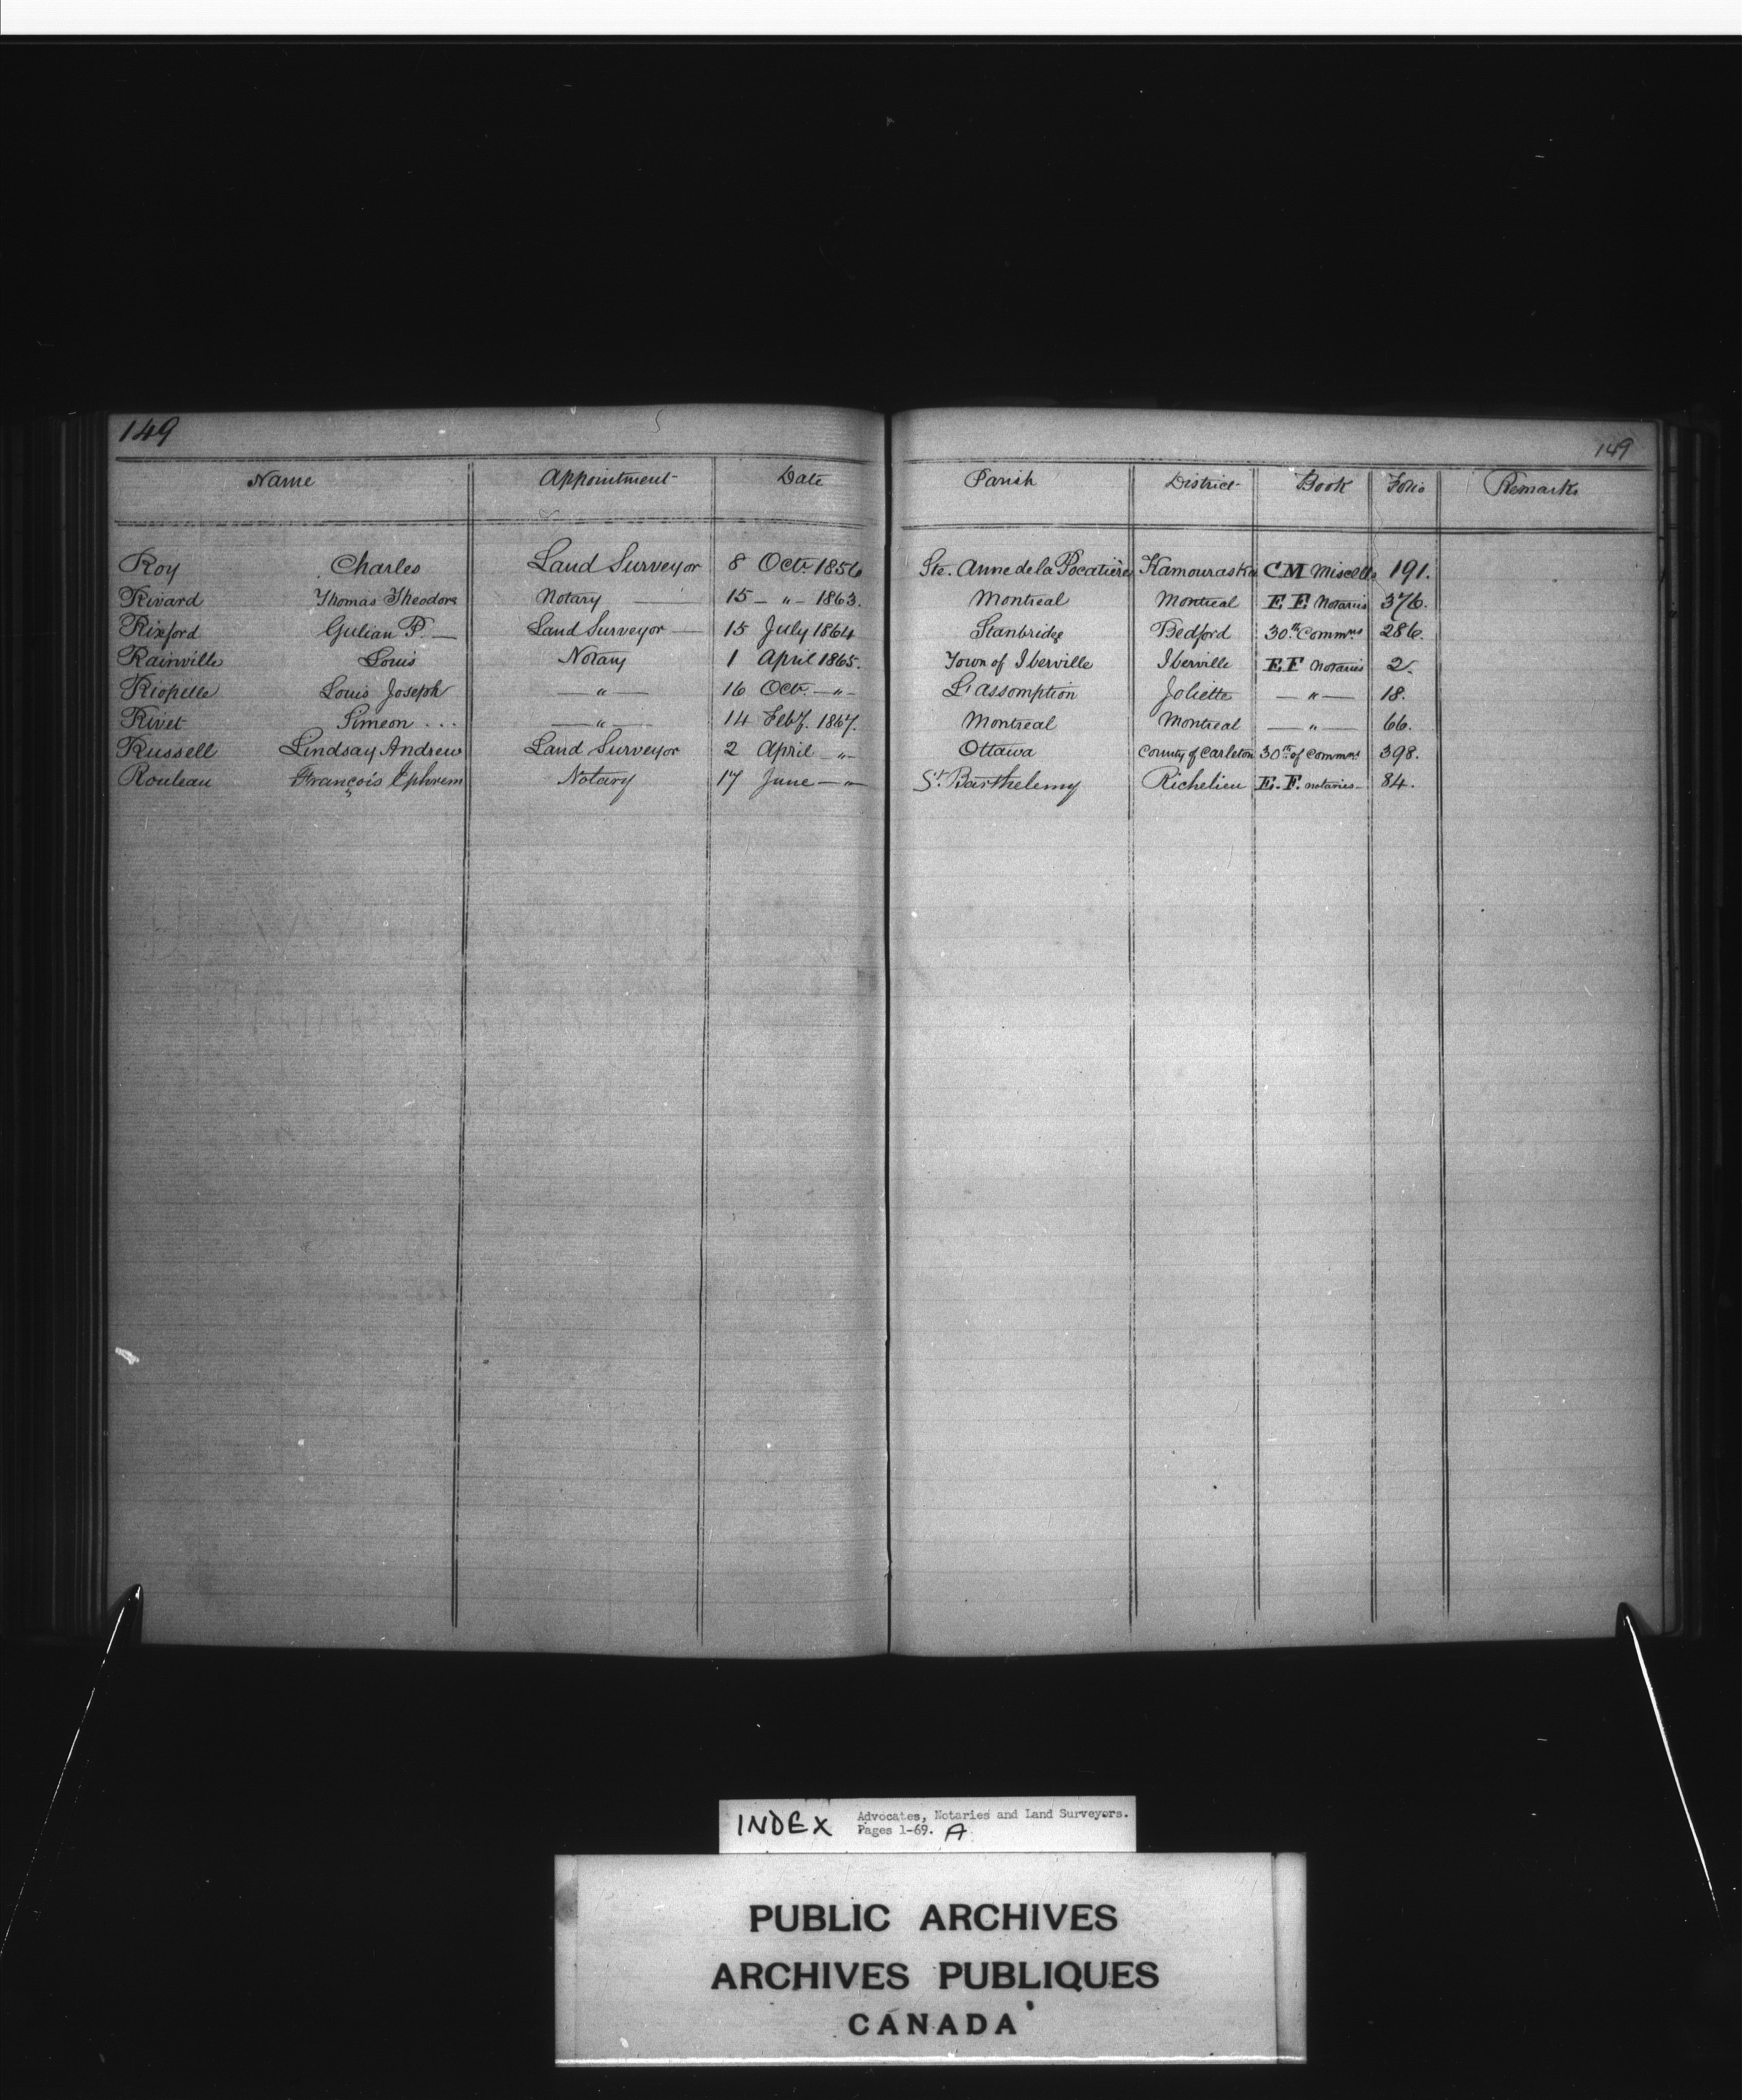 149
149
Name Appointment Date Parish District Book Folio Remarks
Roy Charles Land Surveyor 8 Octr 1856 Ste. Anne de la Pocatière Kamouraska CM Miscells 191.
Rivard Thomas Theodore Notary — 15 — " — 1863. Montreal Montreal E F Notaries 376.
Rixford Gulian P. — Land Surveyor — 15 July 1864 Stanbridge Bedford 30.th Commns 286.
Rainville Louis Notary 1 April 1865. Town of Iberville Iberville E F Notaries 2.
Riopelle Louis Joseph — " — 16 Octr. — " — L'assomption Joliette — " — 18.
Rivet Simeon ... — " — 14 Feby. 1867. Montreal Montreal — " — 66.
Russell Lindsay Andrew Land Surveyor 2 April — " — Ottawa County of Carleton 30th of Commns 398.
Rouleau François Ephrem Notary 17 June — " — St. Barthelemy Richelieu E. F. notaries — 84.
INDEX Advocates, Notaries and Land Surveyors.
Pages 1-69. A
PUBLIC ARCHIVES
ARCHIVES PUBLIQUES
CANADA